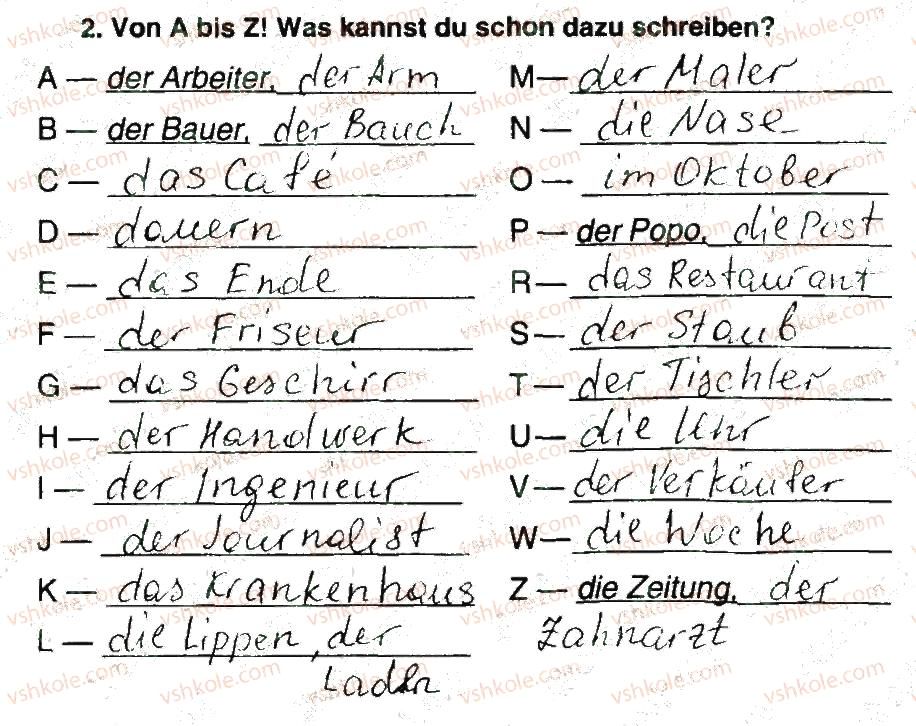 2. Von A bis Z! Was kannst du schon dazu schreiben?
A — der Arbeiter, der Arm
B — der Bauer, der Bauch
C — das Café
D — dauern
E — das Ende
F — der Friseur
G — das Geschirr
H — der Handwerk
I — der Ingenieur
J — der Journalist
K — das Krankenhaus
L — die Lippen, der
Laden
M — der Maler
N — die Nase
O — im Oktober
P — der Popo, die Post
R — das Restaurant
S — der Staub
T — der Tischler
U — die Uhr
V — der Verkäufer
W — die Woche
Z — die Zeitung, der
Zahnarzt
vshkole.com